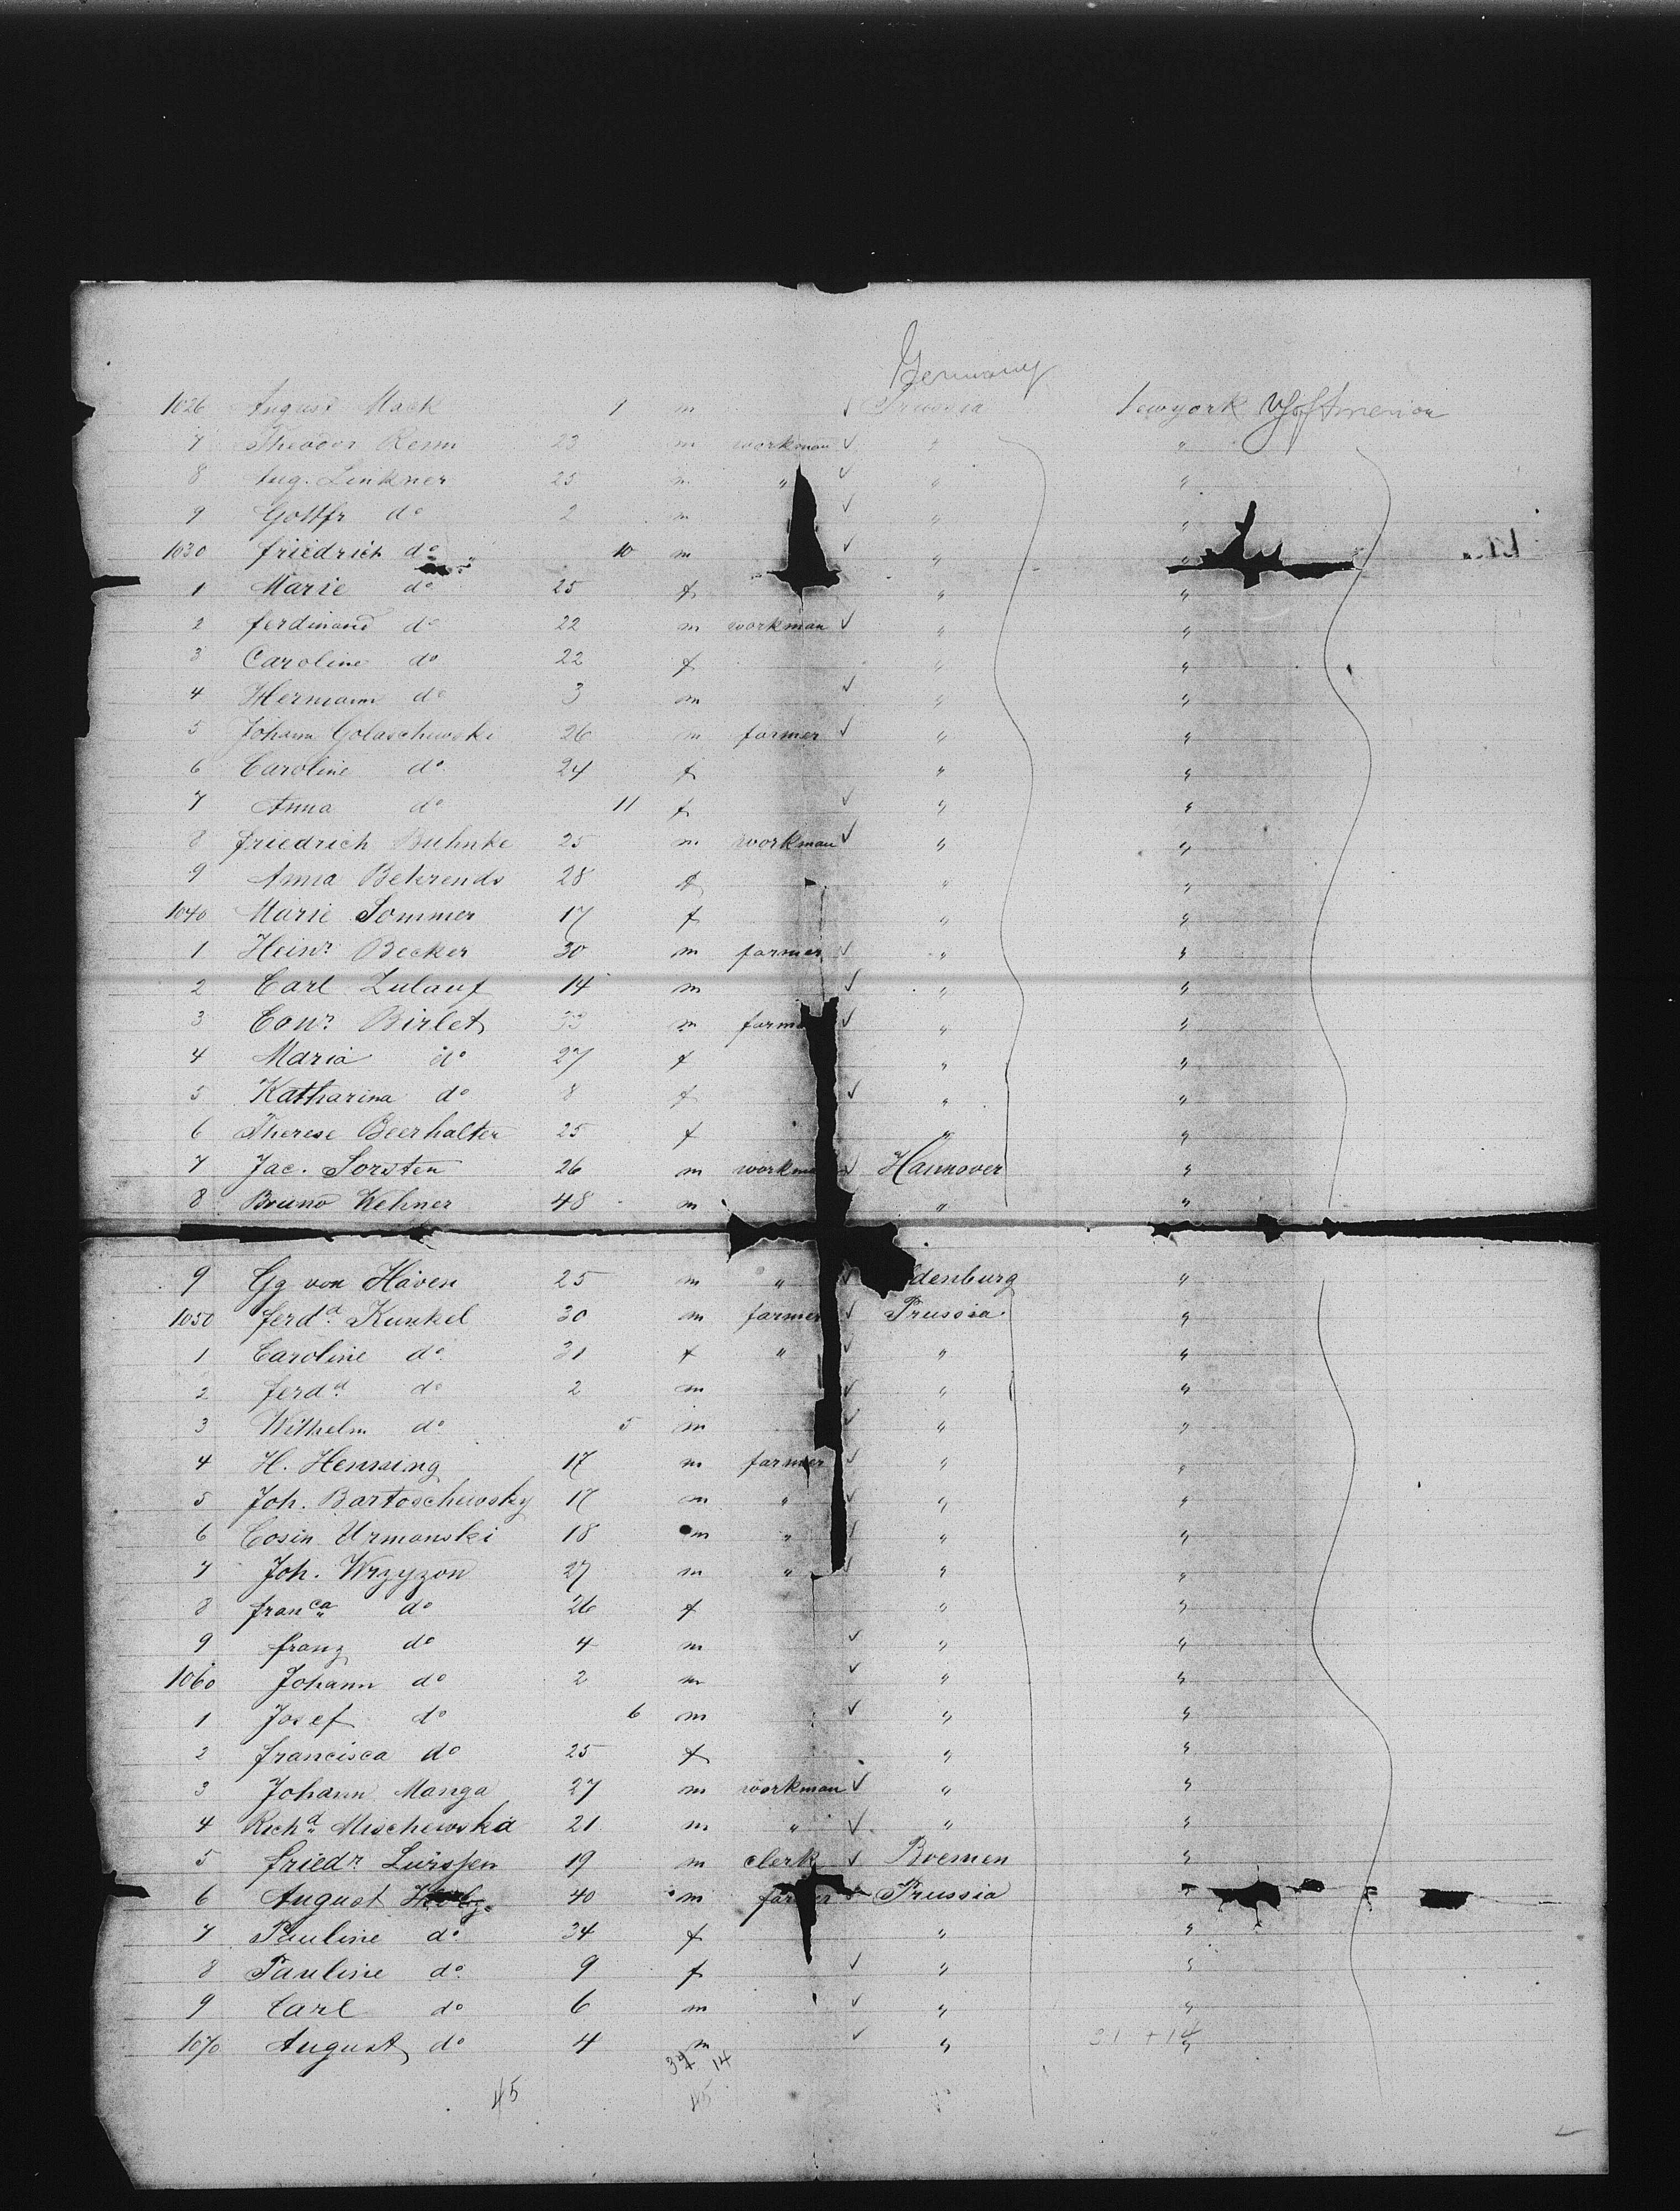 Germany
1026 August Mack 1 m ✓ Prussia Newyork US of America
7 Theodor Remi 23 m workman ✓ " "
8 Aug. Linkner 25 m " ✓ " "
9 Gottfr do 2 m ✓ " "
1030 friedrich do 10 m ✓ " "
1 Marie do 25 f " "
2 ferdinand do 22 m workman ✓ " "
3 Caroline do 22 f " "
4 Hermann do 3 m ✓ " "
5 Johann Golaschewski 26 m farmer ✓ " "
6 Caroline do 24 f " "
7 Anna do 11 f ✓ " "
8 friedrich Buhnke 25 m workman ✓ " "
9 Anna Behrends 28 f " "
1040 Marie Sommer 17 f " "
1 Heinr Becker 30 m farmer ✓ " "
2 Carl Zulauf 14 m ✓ " "
3 Conr Birlet 33 m farme ✓ " "
4 Maria do 27 f " "
5 Katharina do 8 f ✓ " "
6 Therese Beerhalter 25 f " "
7 Jac. Sorsten 26 m workma ✓ Hannover "
8 Bruno Wehner 48 m " "
9 Gg von Häven 25 m " ✓ denburg "
1050 ferdd Kunkel 30 m farmer ✓ Prussia "
1 Caroline do 31 f " ✓ " "
2 ferdd do 2 m ✓ " "
3 Wilhelm do 5 m ✓ " "
4 H. Hensing 17 m farmer ✓ " "
5 Joh. Bartoschewsky 17 m " ✓ " "
6 Cosin Urmanski 18 m " ✓ " "
7 Joh. Wrzyzon 27 m " ✓ " "
8 franca do 26 f " "
9 franz do 4 m ✓ " "
1060 Johann do 2 m ✓ " "
1 Josef do 6 m ✓ " "
2 francisca do 25 f " "
3 Johann Manga 27 m workman ✓ " "
4 Richd Mischewska 21 m " ✓ " "
5 friedr Lürssen 19 m clerk ✓ Bremen "
6 August 40 m farmer ✓ Prussia "
7 Pauline do 34 f " "
8 Pauline do 9 f ✓ " "
9 Carl do 6 m ✓ " "
1070 August do 4 m ✓ " "
31 + 14
31 14
45 45